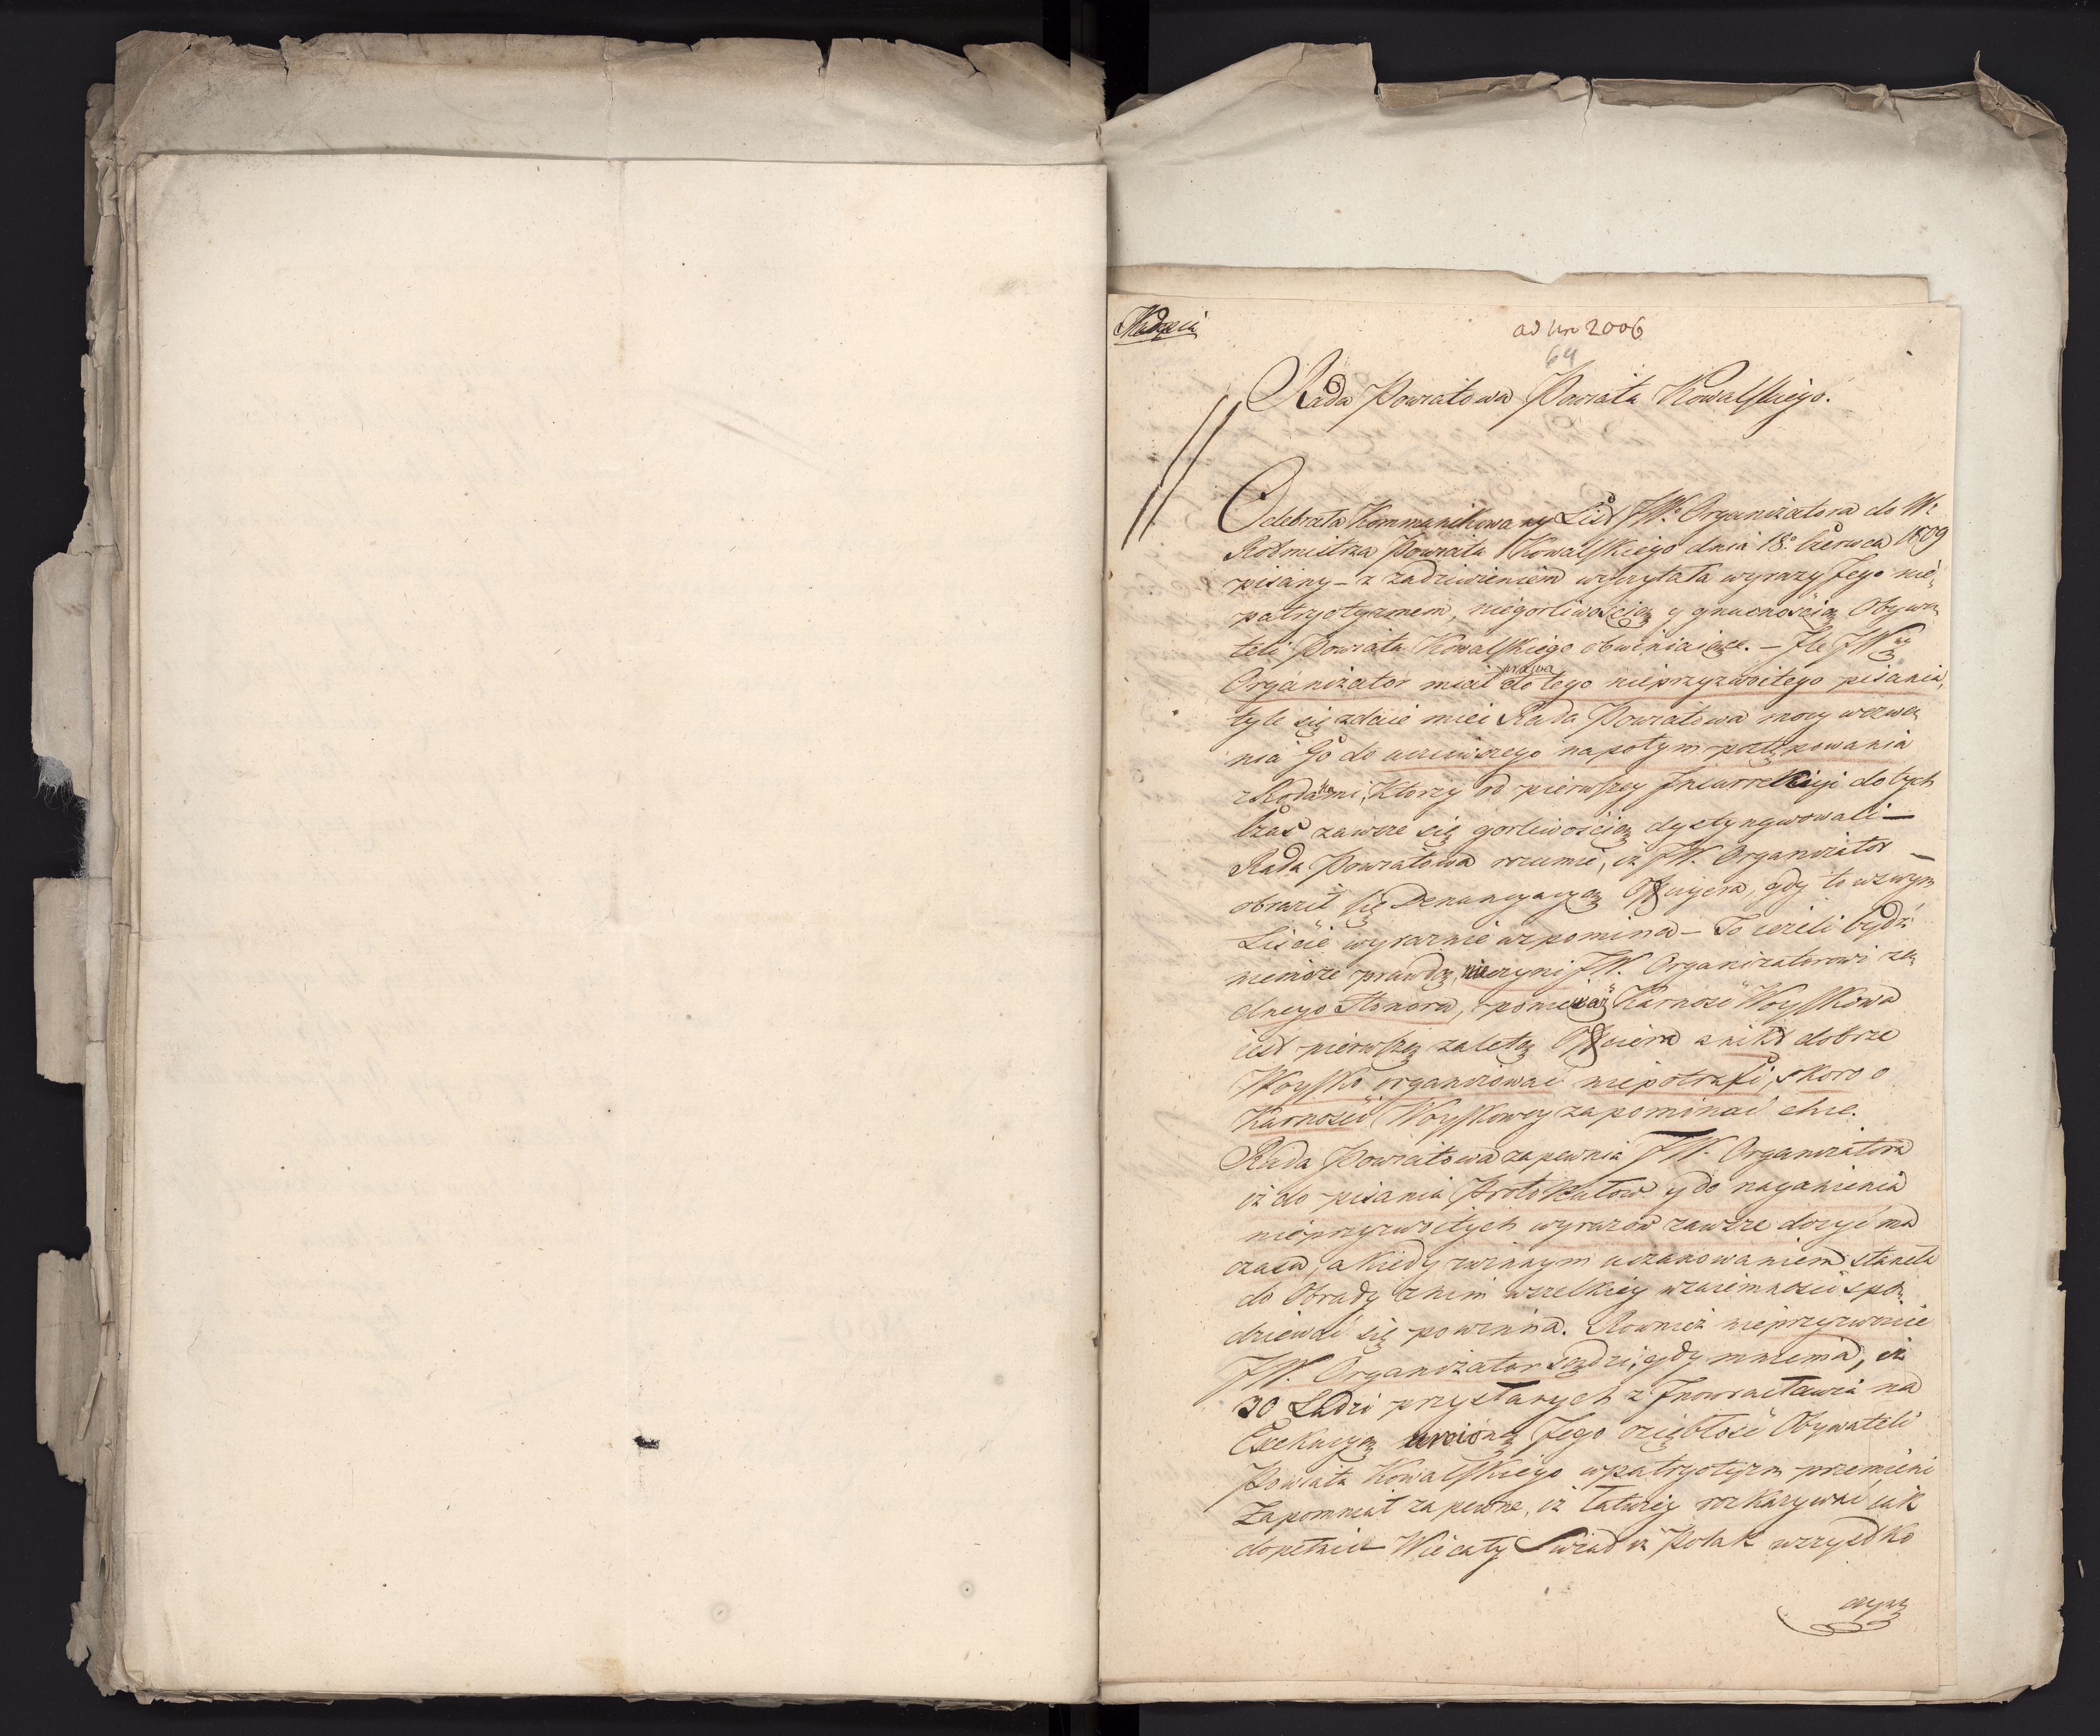 ad Nro 2006
64
Rada Powiatowa Powiatu Kowalskiego.
Odebrała Kommunikowany List JW. Organizatora do W.
Rotmistrza Powiatu Kowalskiego dnia 18. Czerwca 1809
pisany – z zadziwieniem wyczytała wyrazy Jego nie-
patryotyzmem, niegorliwością y gnuśnością Obywa-
teli Powiatu Kowalskiego obwiniaiące. – Ile JWny
Organizator miał prawa do tego nieprzyzwoitego pisania,
tyle się zdaie mieć Rada Powiatowa mocy wezwa-
nia Go do uczciwszego napotym postępowania
z Rodakami, Ktorzy od pierwszey Insurrekcyi do tych
Czas zawsze się gorliwością dystyngwowali –
Rada Powiatowa rozumie, iż JW. Organizator –
obraził się Denuncyacyą Officyera, gdy to w swym
Liście wyraznie wspomina – To ieżeli bydź
niemoże prawdą, nieczyni JW. Organizatorowi ża-
dnego Honoru, ponieważ Karność Woyskowa
iest pierwszą zaletą Officiera a nikt dobrze
Woysko organizować niepotrafi, skoro o
Karności Woyskowey zapominać chce.
Rada Powiatowa zapewnia JW. Organizatora
iż do pisania Protokułow y do naganienia
nieprzyzwoitych wyrazow zawsze dosyć ma
czasu, a kiedy z winnym uszanowaniem staneła
do Obrady z nim wszelkiey wzaiemności spo-
dziewać się powinna. Rownież nieprzyzwoicie
JW. Organizator sądzi, gdy mniema, iż
30 Ludzi przysłanych z Inowracławia na
Exekucyą Jego oziębłość Obywateli
Powiatu Kowalskiego w patryotyzm przemieni
Zapomniał zapewne, iż łatwiey rozkazywać iak
dopełnić Wie cały Swiat iż Polak wszystko